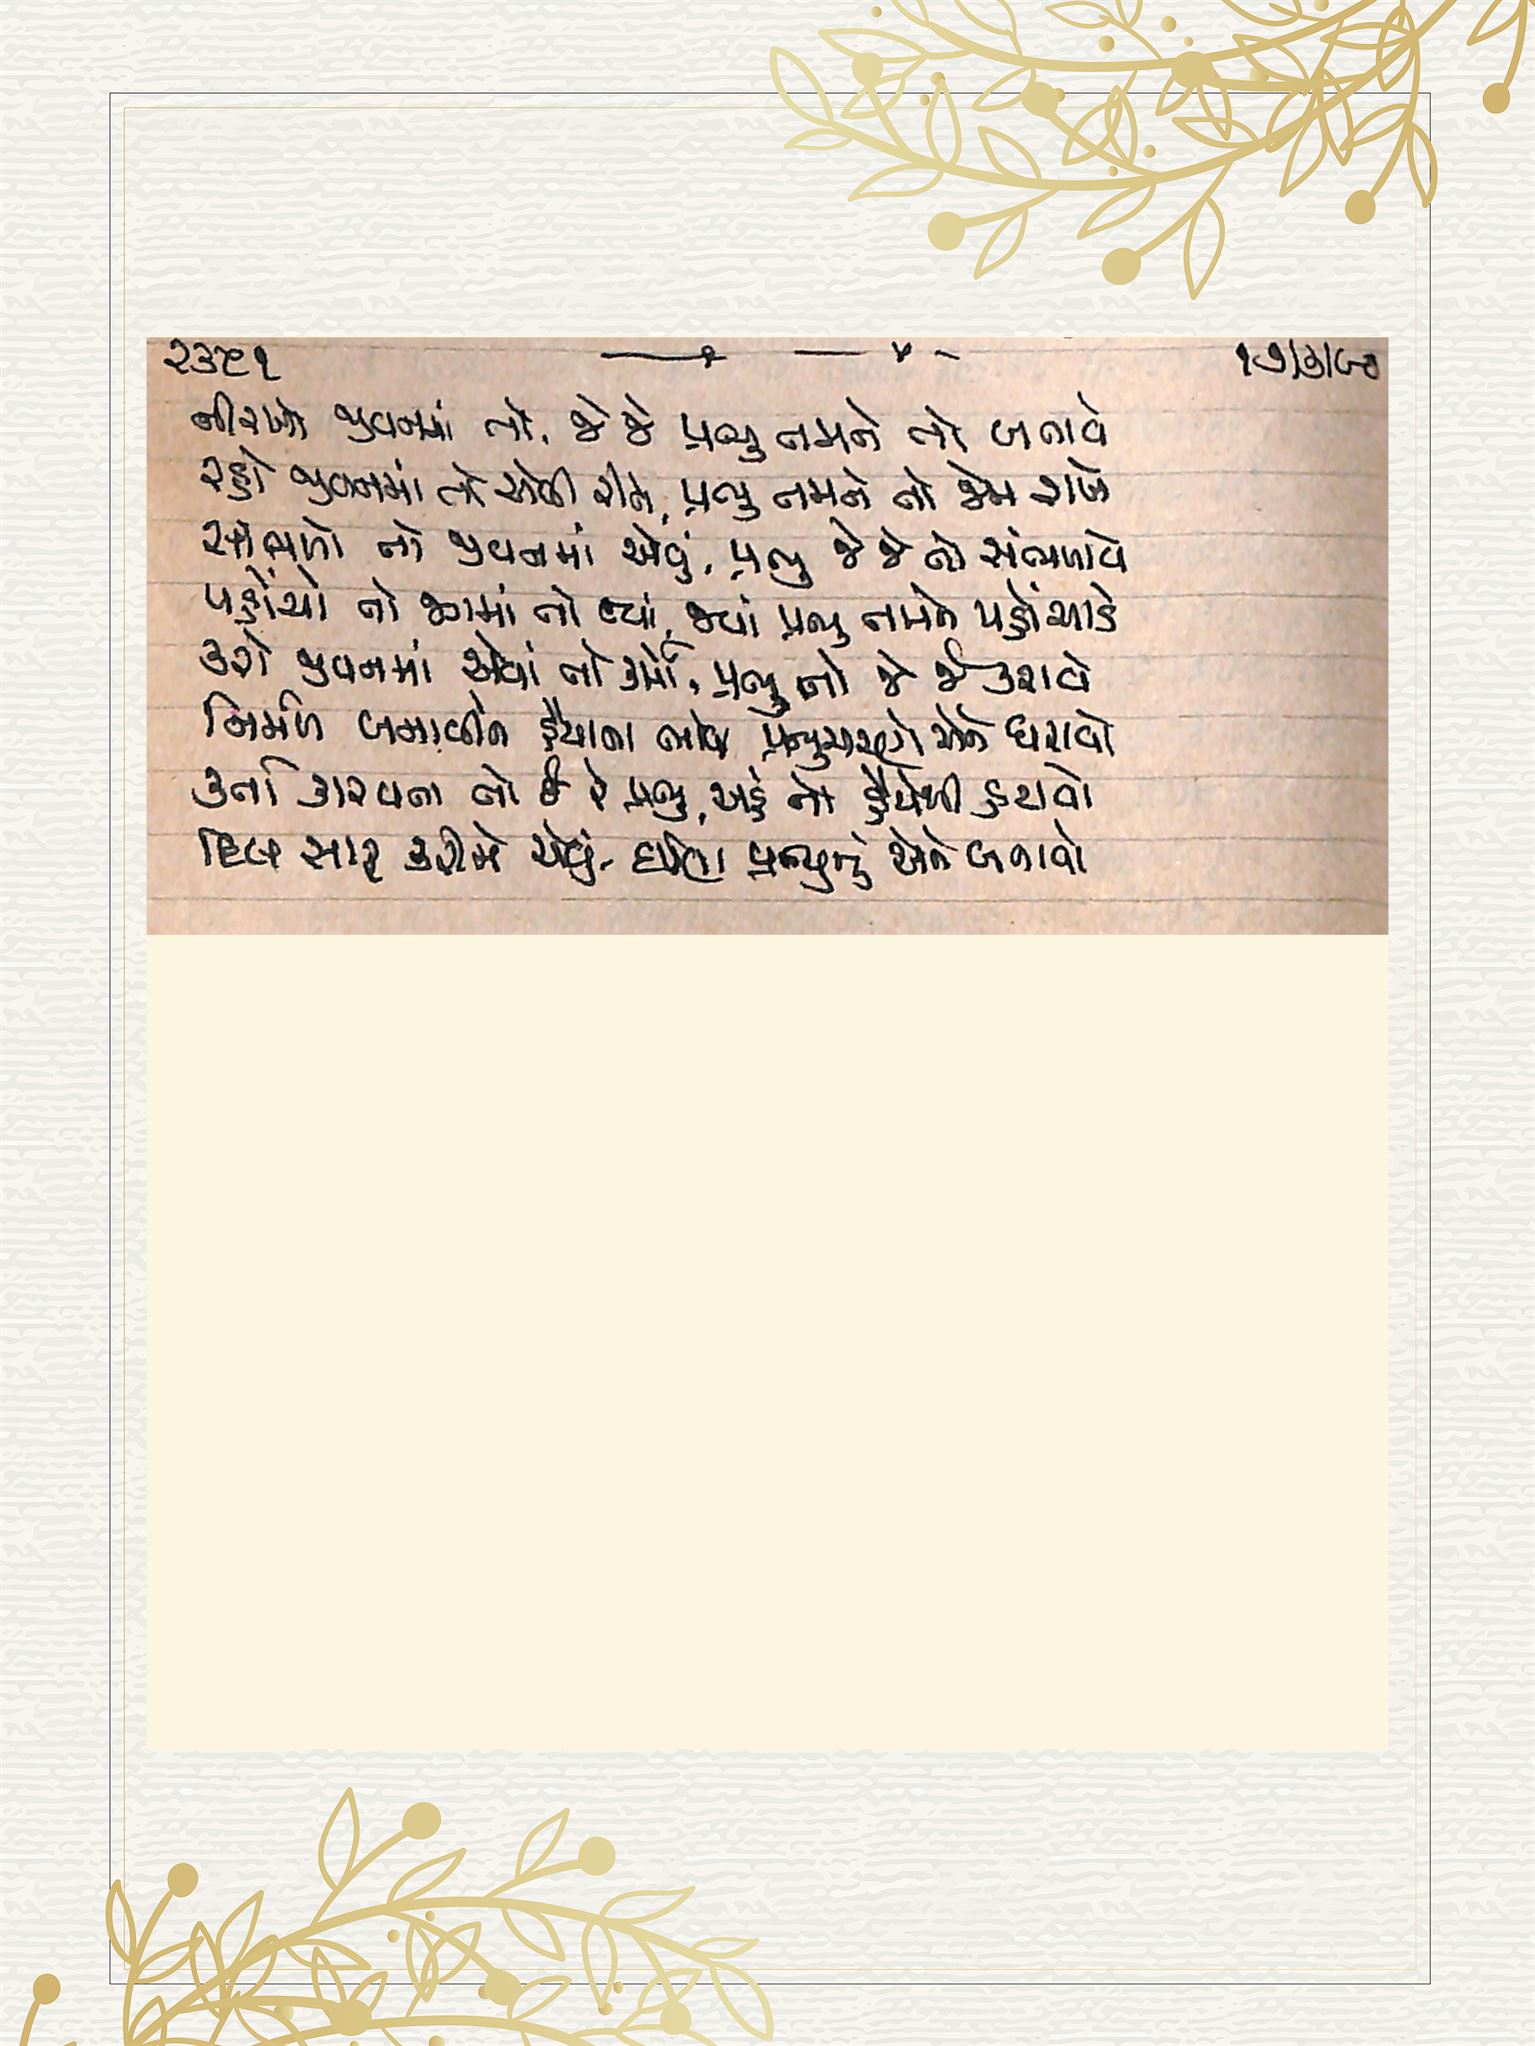 ૨૩૯૧ ૧૭/૩/૯૦
નીરખો જીવનમાં તો, જે જે પ્રભુ તમને તો બતાવે
રહો જીવનમાં તો એવી રીતે, પ્રભુ તમને તો જેમ રાખે
સાંભળો તો જીવનમાં એવું, પ્રભુ જે જે તો સંભળાવે
પહોંચો તો જગમાં તો ત્યાં, જ્યાં પ્રભુ તમને પહોંચાડે
કરો જીવનમાં એવાં તો કર્મો, પ્રભુ તો જે જે કરાવે
નિર્મળ બનાવીને હૈયાના ભાવ પ્રભુચરણે એને ધરાવો
કર્તા કારવતા તો છે રે પ્રભુ, અહં તો હૈયેથી હટાવો
દિલ સાફ કરીને એવું, પ્રભુનું એને બનાવો